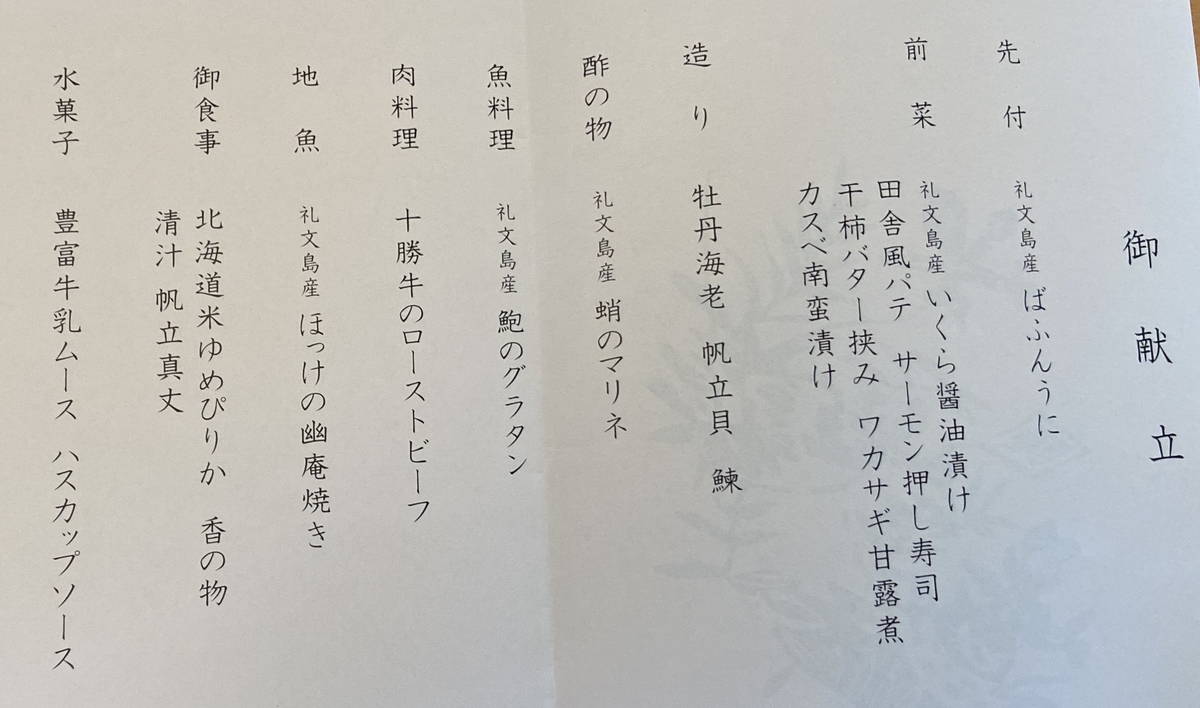 御献立
先付 礼文島産 ばふんうに
前菜 礼文島産 いくら醤油漬け
田舎風パテ サーモン押し寿司
干柿バター挟み ワカサギ甘露煮
カスベ南蛮漬け
造り 牡丹海老 帆立貝 鰊
酢の物 礼文島産 蛸のマリネ
魚料理 礼文島産 鮑のグラタン
肉料理 十勝牛のローストビーフ
地魚 礼文島産 ほっけの幽庵焼き
御食事 北海道米ゆめぴりか 香の物
清汁 帆立真丈
水菓子 豊富牛乳ムース ハスカップソース